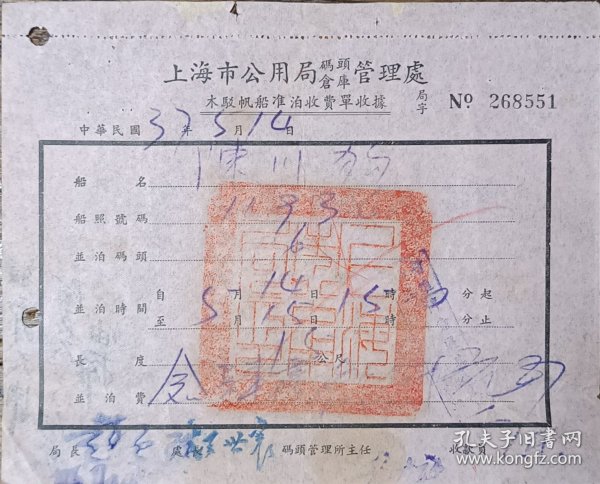 上海市公用局碼頭倉庫管理處
木駁帆船准泊收費單收據
局字 Nº 268551
中華民國 37 年 5 月 14 日
船名
船照號碼 11933
並泊碼頭 6
並泊時間 自 5 月 14 日 15 時 分起
至 5 月 15 日 時 分止
長度 公尺
並泊費
局長 處長 碼頭管理所主任 收款員
孔夫子旧书网
www.kongfz.com